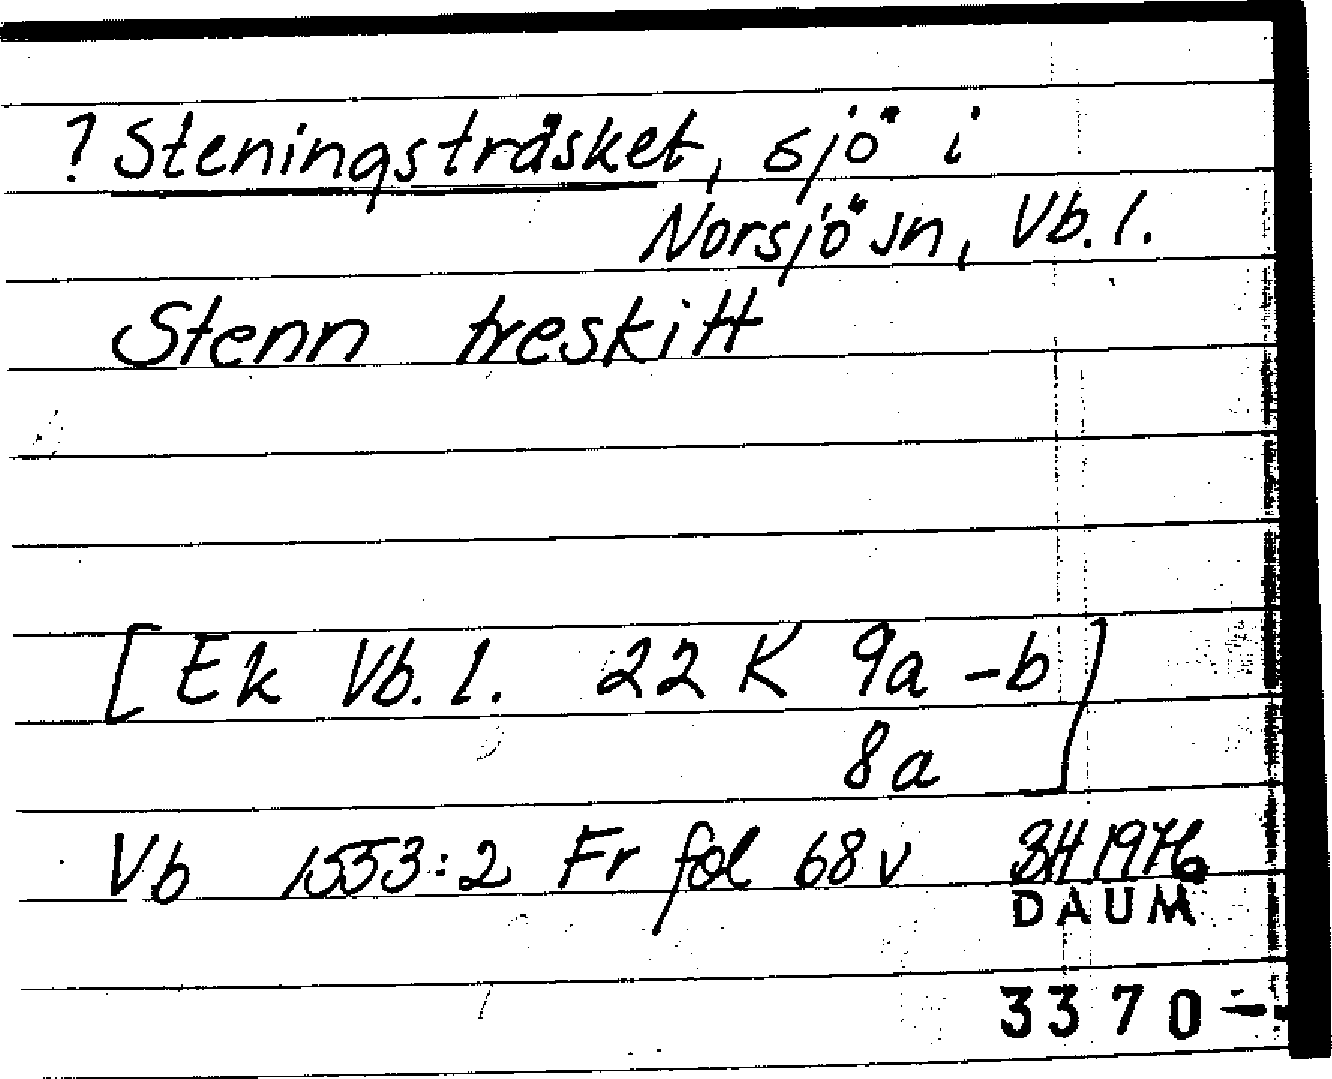 ? Steningsträsket, sjö i
Norsjö sn, Vb. l.
Stenn treskitt
[Ek Vb. l. 22 K 9a - b]
8a
Vb 1553:2 Fr fol 68 v BH 1976
DAUM
3370-